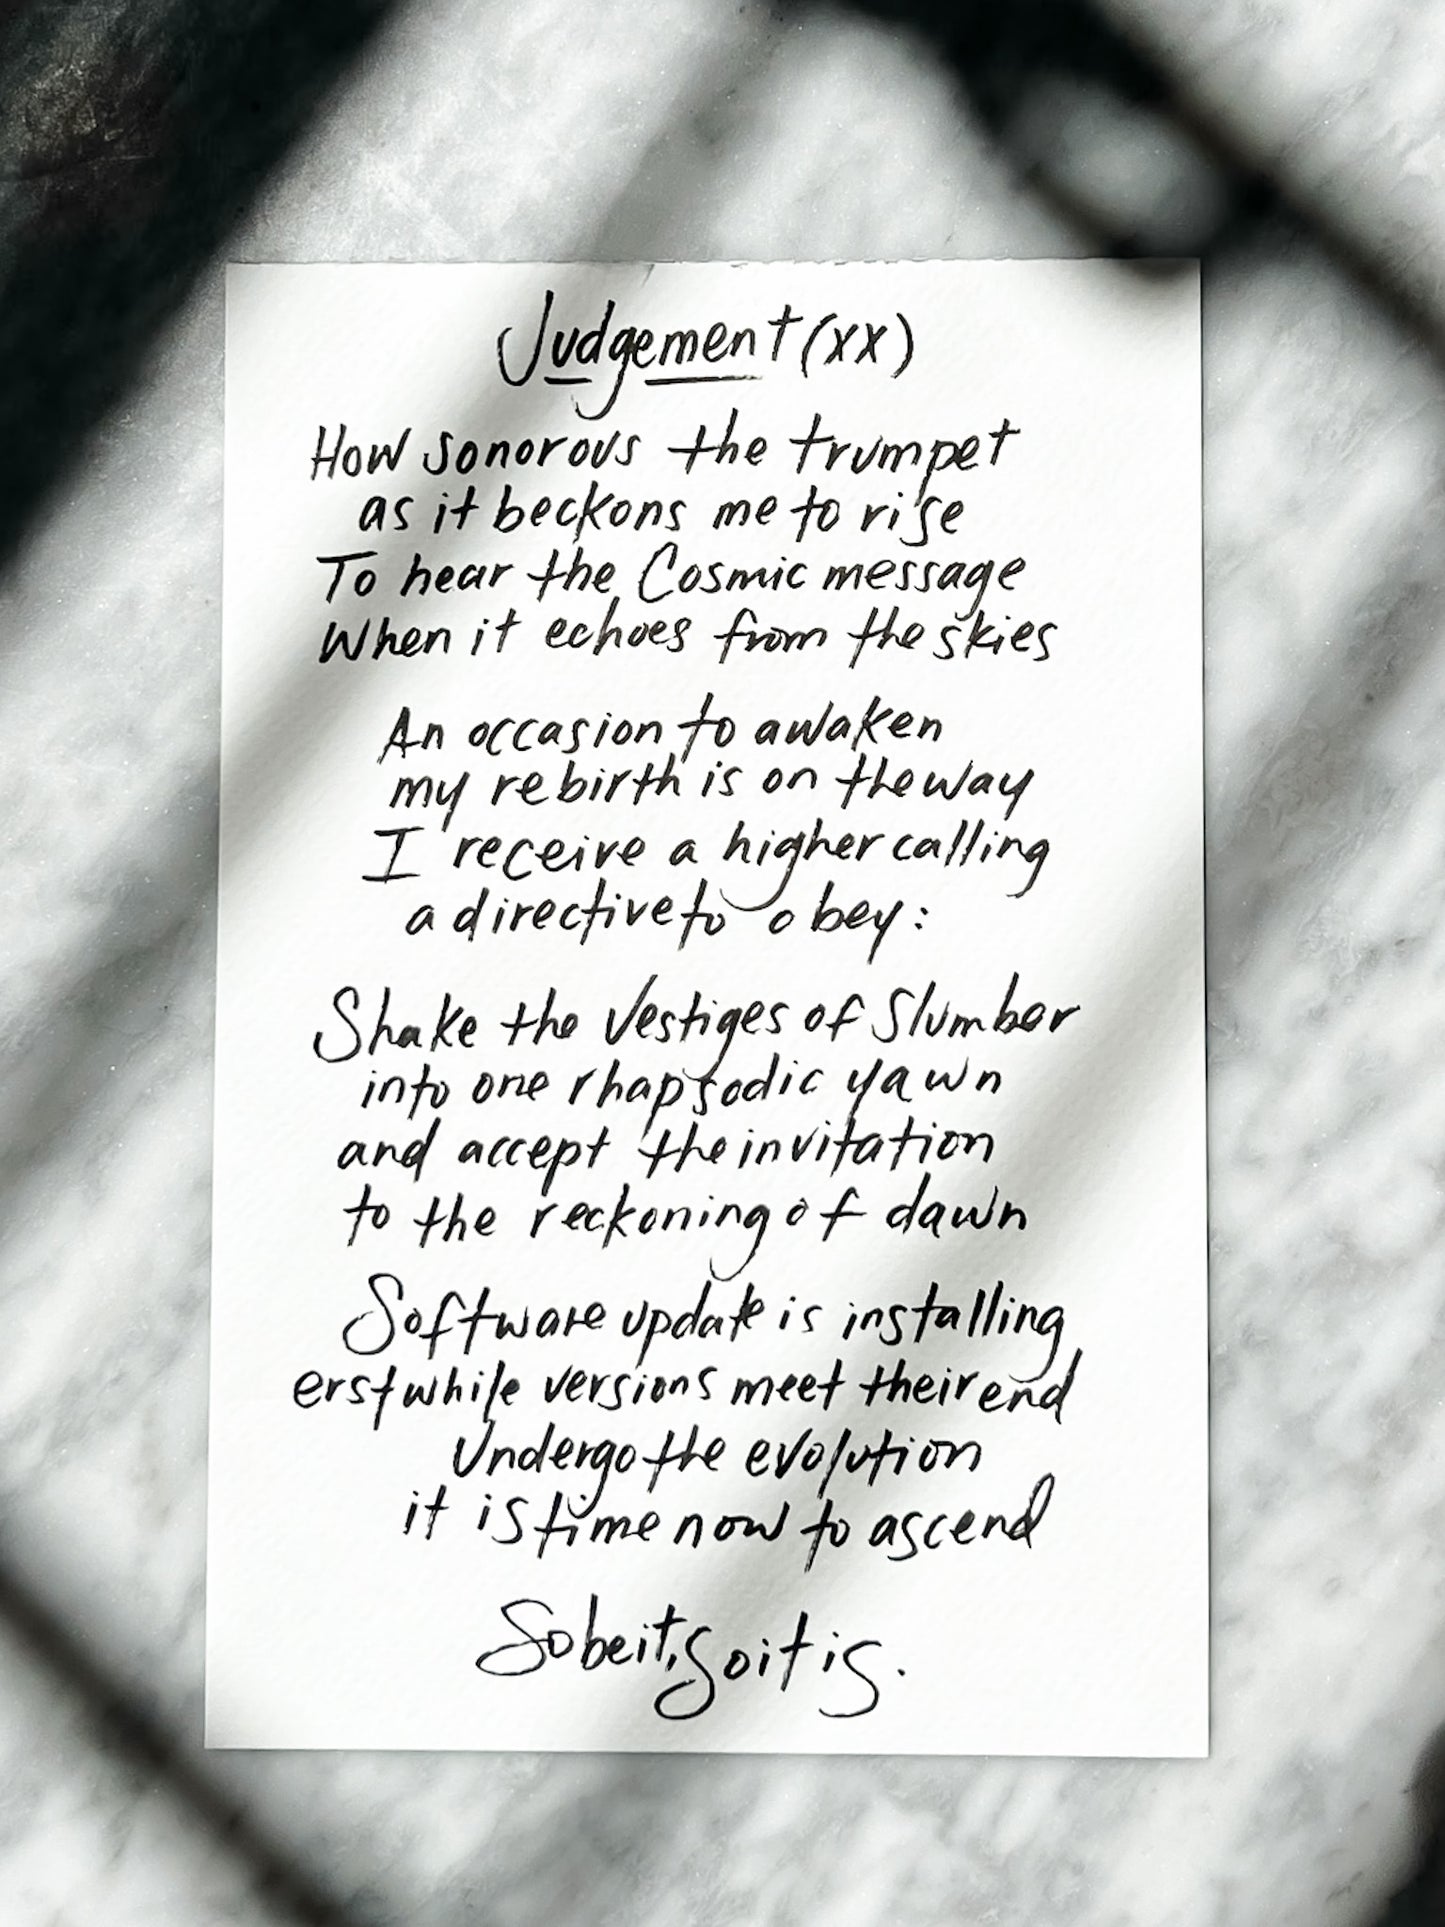 Judgement (XX)
How sonorous the trumpet
as it beckons me to rise
To hear the Cosmic message
When it echoes from the skies
An occasion to awaken
my rebirth is on the way
I receive a higher calling
a directive to obey:
Shake the Vestiges of Slumber
into one rhapsodic yawn
and accept the invitation
to the reckoning of dawn
Software update is installing
erstwhile versions meet their end
Undergo the evolution
it is time now to ascend
So be it, so it is.